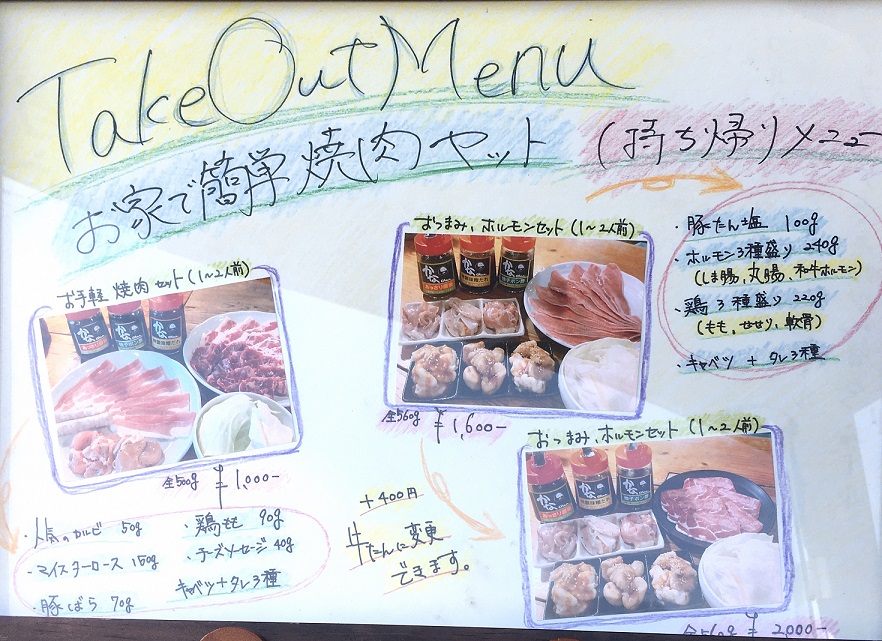 Take Out Menu
お家で簡単焼肉セット
(持ち帰りメニュー
お手軽焼肉セット(1~2人前)
全500g ¥1,000-
・人気のカルビ 50g
・マイスターロース 150g
・豚ばら 70g
・鶏もも 90g
・チーズソーセージ 40g
キャベツ+タレ3種
おつまみ、ホルモンセット(1~2人前)
全560g ¥1,600-
・豚たん塩 100g
・ホルモン3種盛り 240g
(しま腸、丸腸、和牛ホルモン)
・鶏3種盛り 220g
(もも、せせり、軟骨)
・キャベツ + タレ3種
+400円
牛たんに変更
できます。
おつまみ、ホルモンセット(1~2人前)
全560g ¥2,000-